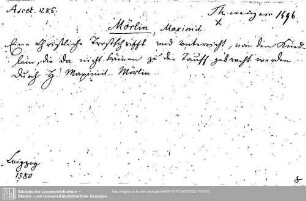 Ascet. 1286.
Mörlin, Maximil.
Eine christliche Trostschrifft und unterricht, von den Kind-
lein, die da nicht können zu der Tauffe gebracht werden
durch D. Maximil. Mörlin
Leipzig
1580
8
Sächsische Landesbibliothek –
Staats- und Universitätsbibliothek Dresden